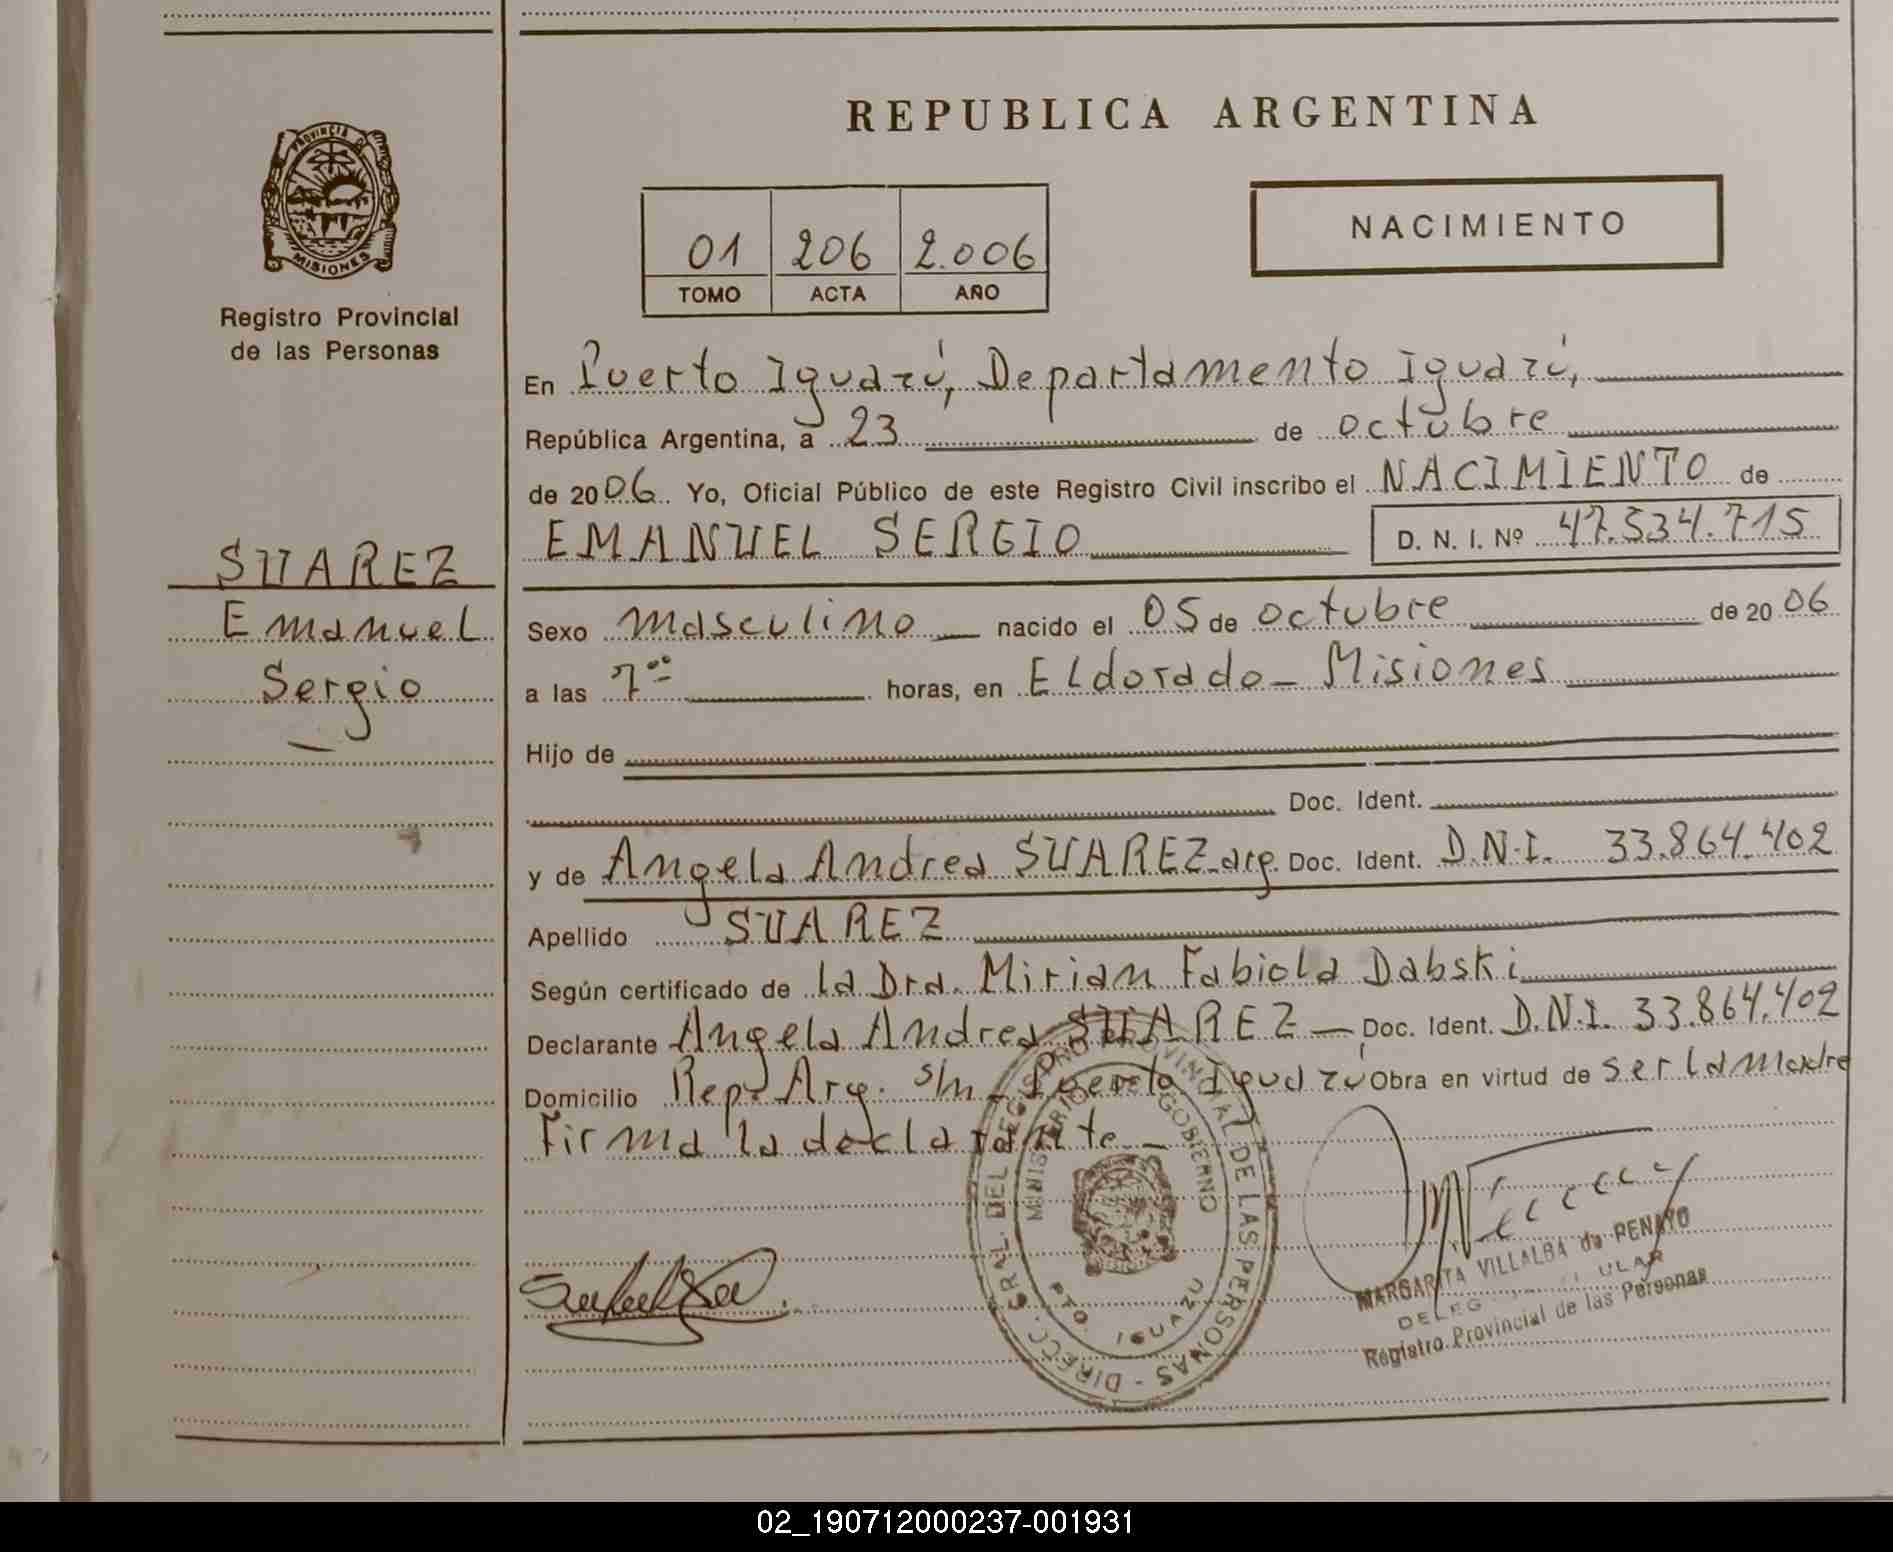 REPUBLICA ARGENTINA
PROVINCIA DE
MISIONES
Registro Provincial
de las Personas
NACIMIENTO
01 206 2.006
TOMO ACTA AÑO
En Puerto Iguazú, Departamento Iguazú,
República Argentina, a 23 de octubre
de 2006. Yo, Oficial Público de este Registro Civil inscribo el NACIMIENTO de
EMANUEL SERGIO D. N. I. Nº 47.534.715
SUAREZ
Emanuel
Sergio
Sexo masculino nacido el 05 de octubre de 2006
a las 7°° horas, en Eldorado - Misiones
Hijo de
Doc. Ident.
y de Angela Andrea SUAREZ-arg. Doc. Ident. D.N.I. 33.864.402
Apellido SUAREZ
Según certificado de la Dra. Mirian Fabiola Dabski
Declarante Angela Andrea SUAREZ — Doc. Ident. D.N.I. 33.864.402
Domicilio Rep. Arg. s/n - Puerto Iguazú Obra en virtud de ser la madre
Firma la declarante -
DIRECC. GRAL. DEL REGISTRO PROVINCIAL DE LAS PERSONAS -
MINISTERIO DE GOBIERNO
PTO. IGUAZU
MARGARITA VILLALBA de PENAYO
Registro Provincial de las Personas
02_190712000237-001931